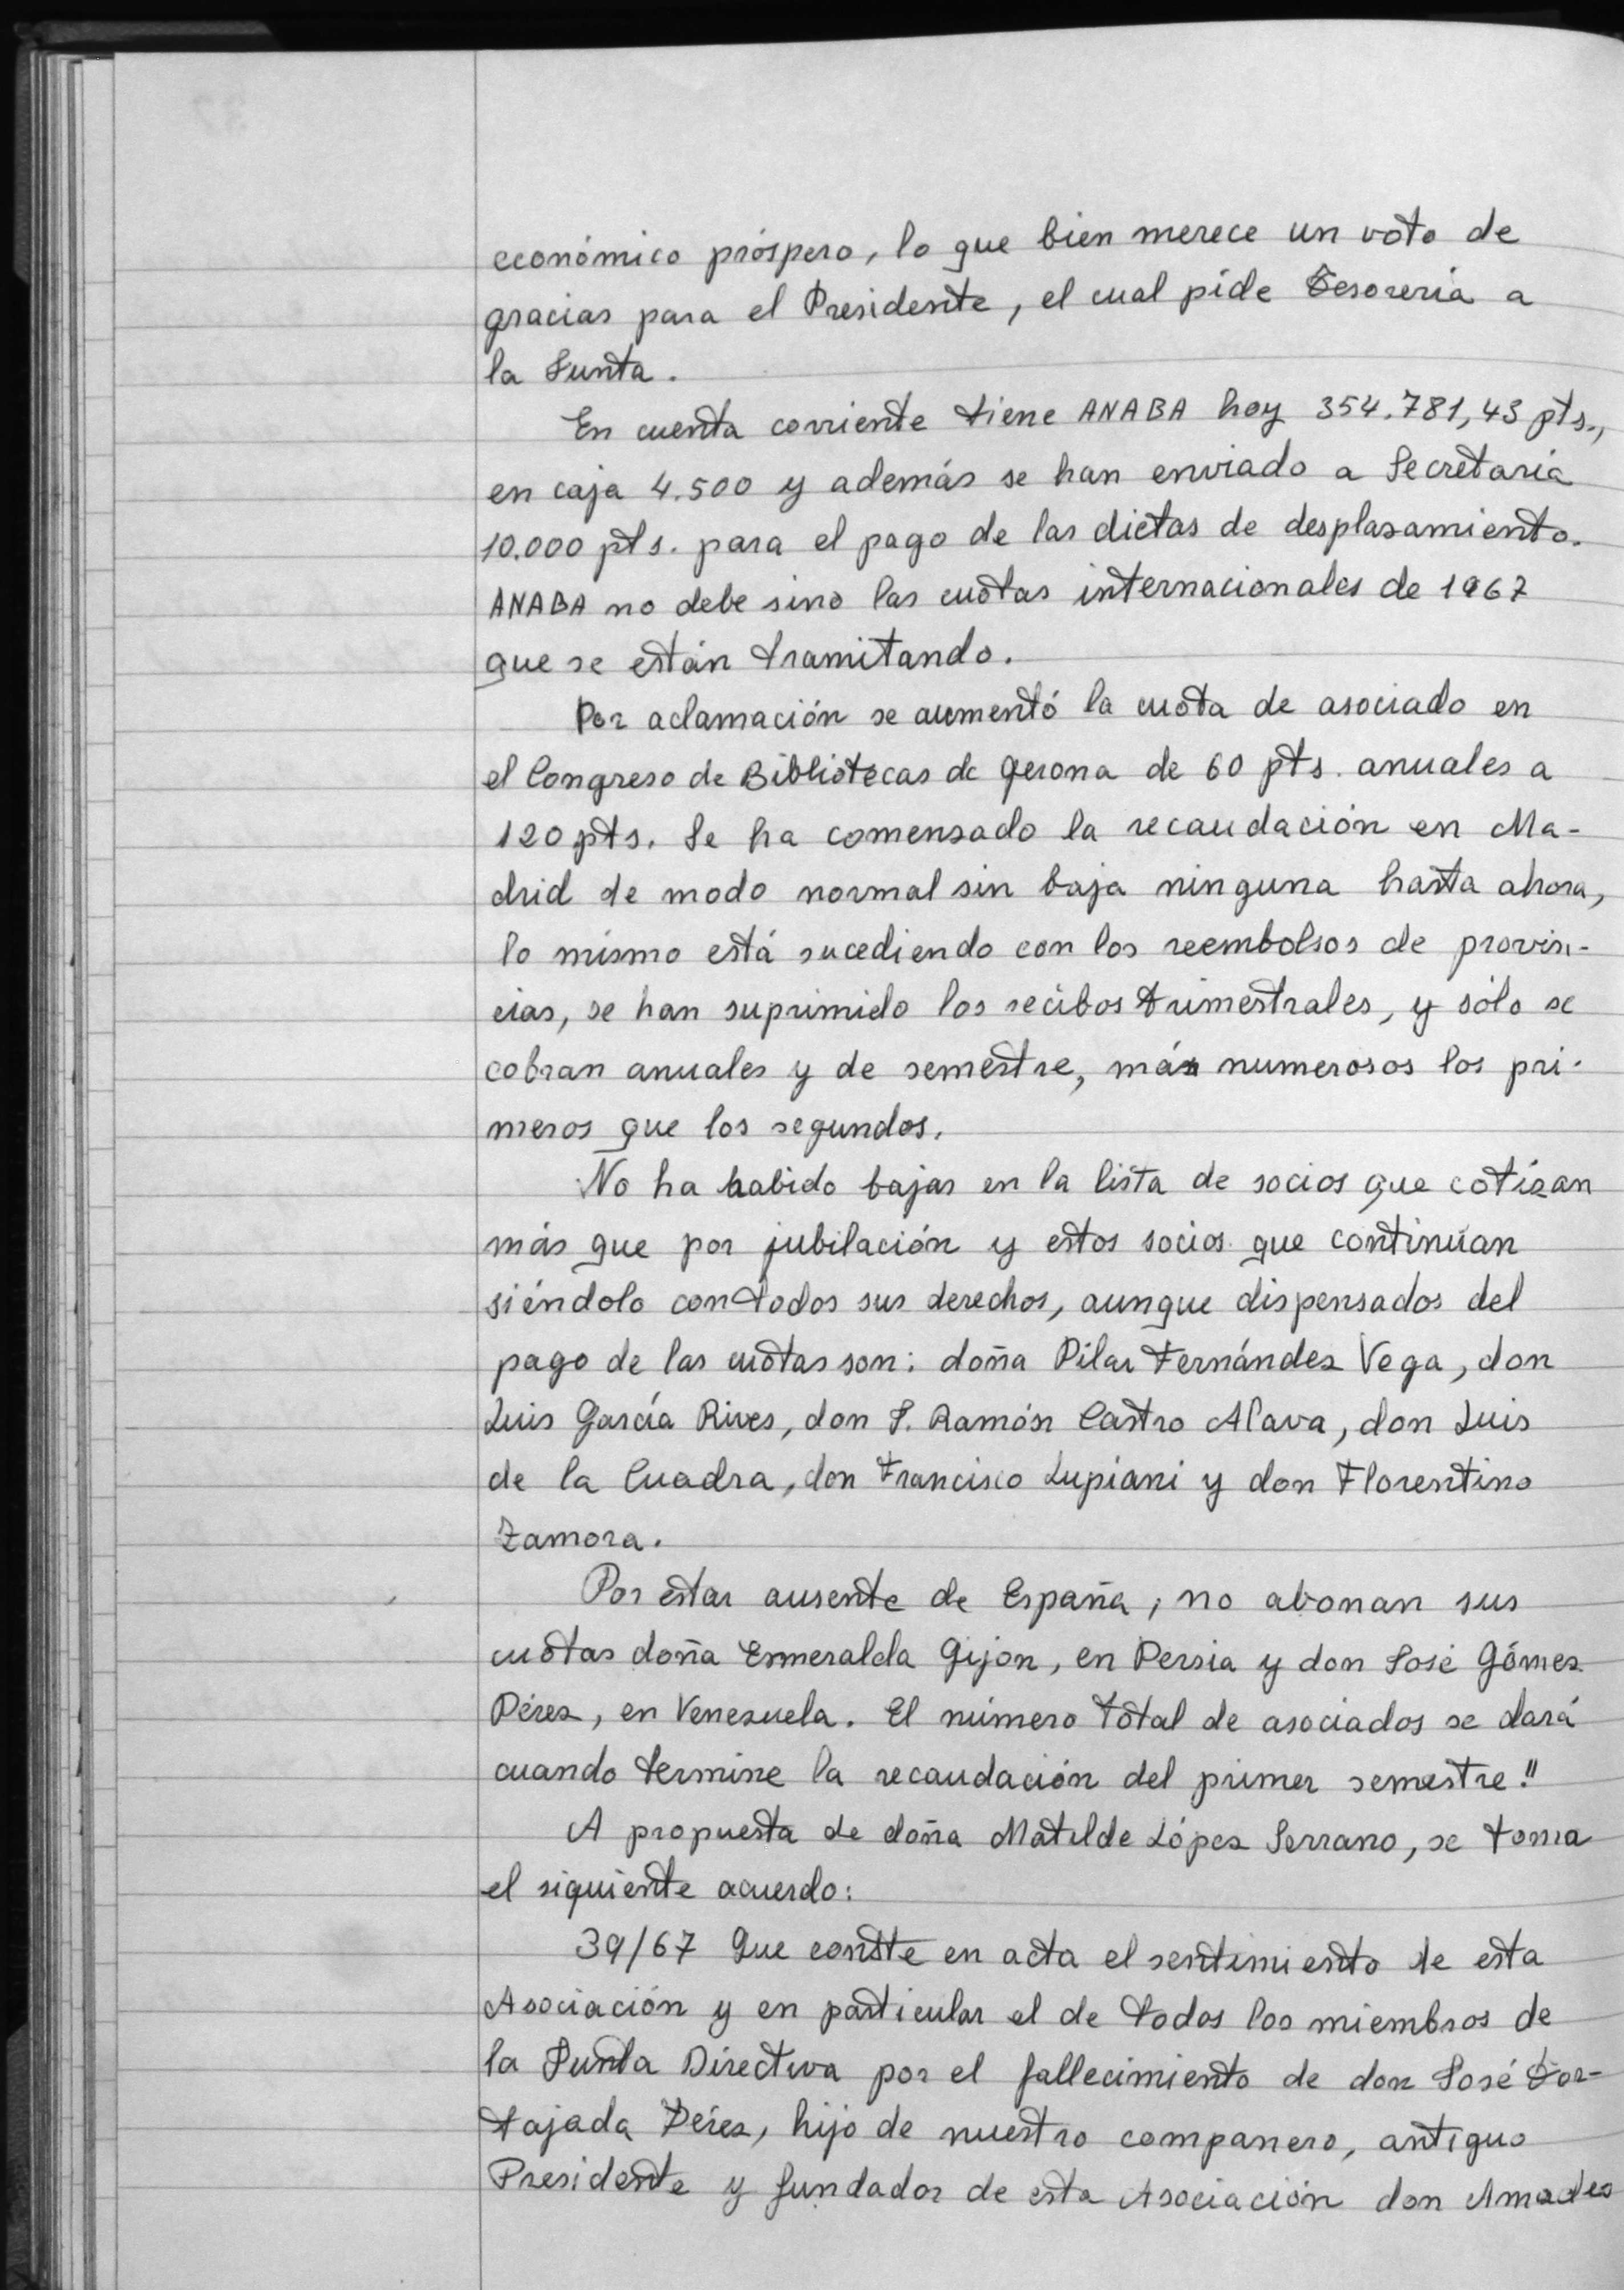 económico próspero, lo que bien merece un voto de
gracias para el Presidente, el cual pide Tesorería a
la Junta.
En cuenta corriente tiene ANABA hoy 354.781,43 pts.,
en caja 4.500 y además se han enviado a Secretaría
10.000 pts. para el pago de las dietas de desplazamiento.
ANABA no debe sino las cuotas internacionales de 1967
que se están tramitando.
Por aclamación se aumentó la cuota de asociado en
el Congreso de Bibliotecas de Gerona de 60 pts. anuales a
120 pts. Se ha comenzado la recaudación en Ma-
drid de modo normal sin baja ninguna hasta ahora,
lo mismo está sucediendo con los reembolsos de provin-
cias, se han suprimido los recibos trimestrales, y sólo se
cobran anuales y de semestre, más numerosos los pri-
meros que los segundos.
No ha habido bajas en la lista de socios que cotizan
más que por jubilación y estos socios que continúan
siéndolo con todos sus derechos, aunque dispensados del
pago de las cuotas son: doña Pilar Fernández Vega, don
Luis García Rives, don J. Ramón Castro Alava, don Luis
de la Cuadra, don Francisco Lupiani y don Florentino
Zamora.
Por estar ausente de España, no abonan sus
cuotas doña Esmeralda Gijon, en Persia y don José Gómez
Pérez, en Venezuela. El número total de asociados se dará
cuando termine la recaudación del primer semestre."
A propuesta de doña Matilde López Serrano, se toma
el siguiente acuerdo:
39/67 Que conste en acta el sentimiento de esta
Asociación y en particular el de todos los miembros de
la Junta Directiva por el fallecimiento de don José Tor-
tajada Pérez, hijo de nuestro companero, antiguo
Presidente y fundador de esta Asociación don Amadeo